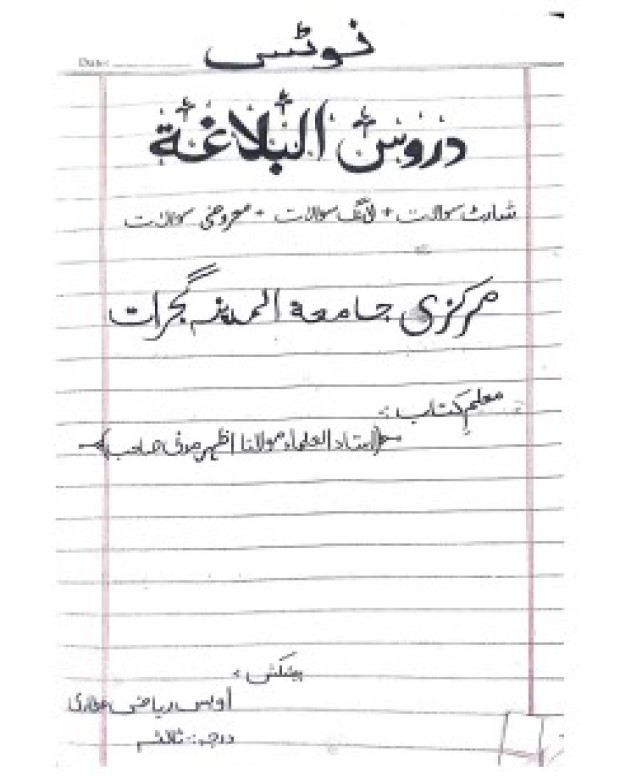 نوٹس
Date:
دروس البلاغة
شارٹ سوالات + لانگ سوالات + معروضی سوالات
مرکزی جامعة المدینہ گجرات
معلمِ کتاب:
استاذ العلماء مولانا اظہر صاحب
پیشکش:
اویس ریاض عطاری
درجہ: ثالثہ